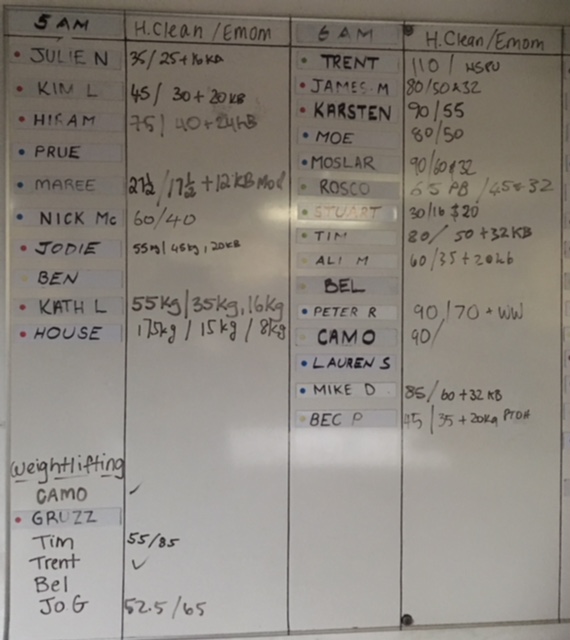 5 AM H.Clean/Emom
JULIE N 35/25+16KB
KIM L 45/30+20KB
HIRAM 75/40+24KB
PRUE
MAREE 27½/17½+12KB Mod
NICK Mc 60/40
JODIE 55kg/45kg, 20KB
BEN
KATH L 55kg/35kg, 16kg
HOUSE 175kg/15kg/8kg
weightlifting
CAMO ✓
GRUZZ
Tim 55/85
Trent ✓
Bel
Jo G 52.5/65
6 AM H.Clean/Emom
TRENT 110/HSPU
JAMES.M 80/50&32
KARSTEN 90/55
MOE 80/50
MOSLAR 90/60&32
ROSCO 65 PB/45&32
STUART 30/16 $20
TIM 80/50+32KB
ALI M 60/35+20kb
BEL
PETER R 90/70+WW
CAMO 90/
LAUREN S
MIKE D 85/60+32KB
BEC P 45/35+20kg